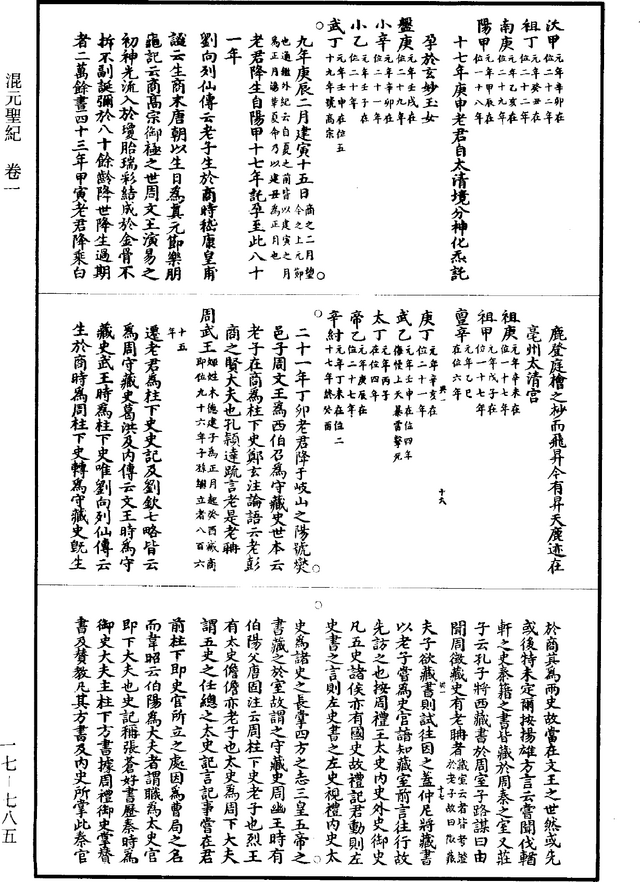 沃甲元年辛卯在位二十二年
祖丁元年癸丑在位二十二年
南庚元年乙亥在位二十九年
陽甲元年甲辰在位一十八年
十七年庚申老君自太清境分神化炁託
孕於玄妙玉女
盤庚元年壬戌在位二十九年
小辛元年辛卯在位二十一年
小乙元年壬子在位二十年
武丁元年壬申在位五十九年號高宗
九年庚辰二月建寅十五日商之二月望今之上元節也通鑑外紀云自夏之前皆以建寅之月為正月湯革夏命乃以建丑為正月也
老君降生自陽甲十七年託孕至此八十
一年
劉向列仙傳云老子生於商時嵇康皇甫
謐云生商末唐朝以生日為真元節樂朋
龜記云商高宗御極之世周文王演易之
初神光流入於瓊胎瑞彩結成於金骨不
拆不副誕彌於八十餘齡降世降生過期
者二萬餘晝四十三年甲寅老君降乘白
鹿登庭檜之杪而飛昇今有昇天鹿迹在
亳州太清宮
祖庚元年辛未在位一十七年
祖甲元年戊子在位一十七年
廩辛元年乙巳在位六年
庚丁元年辛亥在位二十一年
武乙元年壬申在位四年傷慢上天暴雷擊死
太丁元年丙子在位四年
帝乙元年庚辰在位二十七年
辛紂元年丁未在位二十七年終癸酉
二十一年丁卯老君降于岐山之陽號燮
邑子周文王為西伯召為守藏史世本云
老子在商為柱下史鄭玄注論語云老彭
商之賢大夫也孔頴達疏言老是老聃
周武王姬姓木德建子為正月起癸酉滅商即位九十六年子孫紹立者八百六十五年
遷老君為柱下史史記及劉歆七略皆云
為周守藏史葛洪及內傳云文王時為守
藏史武王時為柱下史唯劉向列仙傳云
生於商時為周柱下史轉為守藏史旣生
於商真為兩史故當在文王之世然或先
或後特未定爾按揚雄方言云嘗聞伐輶
軒之史秦籍之書皆藏於周秦之室又莊
子云孔子將西藏書於周室子路謀曰由
聞周徵藏史有老聃者
夫子欲藏書則試往因之蓋仲尼將藏書
以老子嘗為史官諳知藏室前言往行故
先訪之也按周禮王太史內史外史御史
凡五史諸侯亦有國史故禮記君動則左
史書之言則左史書之左史視禮內史太
史為諸史之長掌四方之志三皇五帝之
書藏之於室故謂之守藏史周幽王時有
伯陽父唐固注云周柱下史老子也烈王
有太史儋儋亦老子也太史為周下大夫
謂五史之任總之太史記言記事當在君
前柱下即史官所立之處因為曹局之名
而韋昭云伯陽為大夫者謂職為太史官
即下大夫也史記稱張蒼好書歷秦時為
御史大夫主柱下方書據周禮御史掌贊
書及贊教凡其方書及內史所掌此秦官
混元聖紀 卷一
一七－七八五